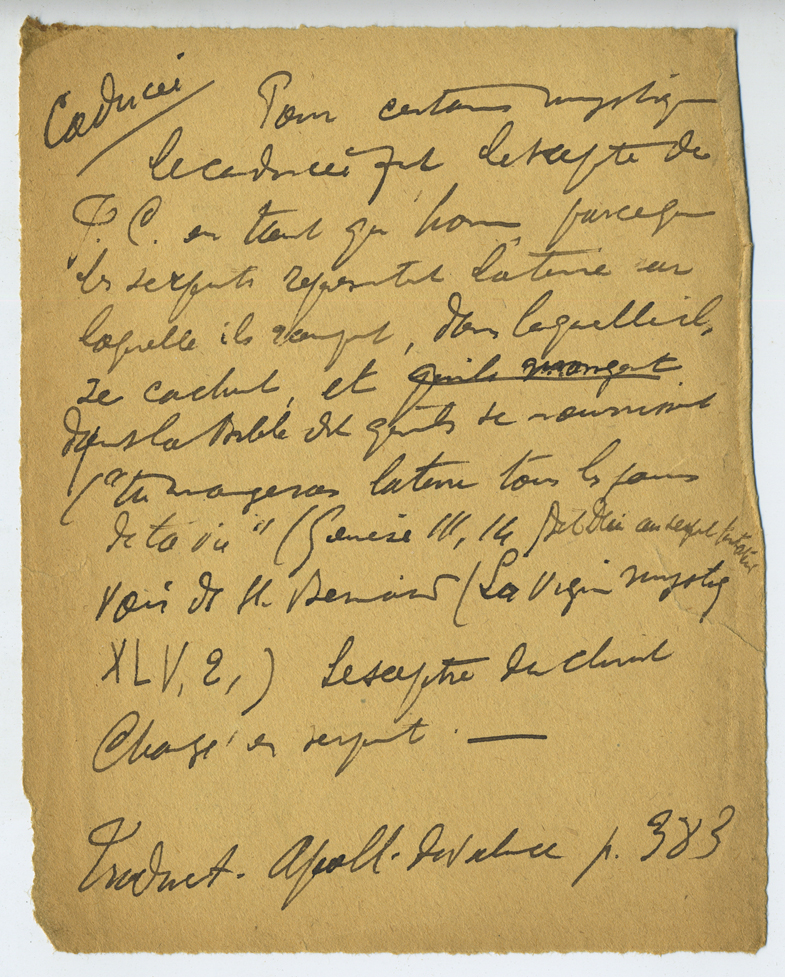 Caducée
Pour certains mystiques
le caducée fut le sceptre de
J. C. en tant qu'homme parce que
les serpents représentent la terre sur
laquelle ils rampent, dans laquelle ils
se cachent, et qu'ils mangent
dans la Bible dit qu'ils se nourrissent
("tu mangeras la terre tous les jours
de ta vie" (Genèse III, 14 dit Dieu au serpent tentateur
Voir de St. Bernard (La Vigne mystiq
XLV, 2,) Le sceptre du Christ
Changé en serpent. —
Traduct. Apoll. de Valence p. 383